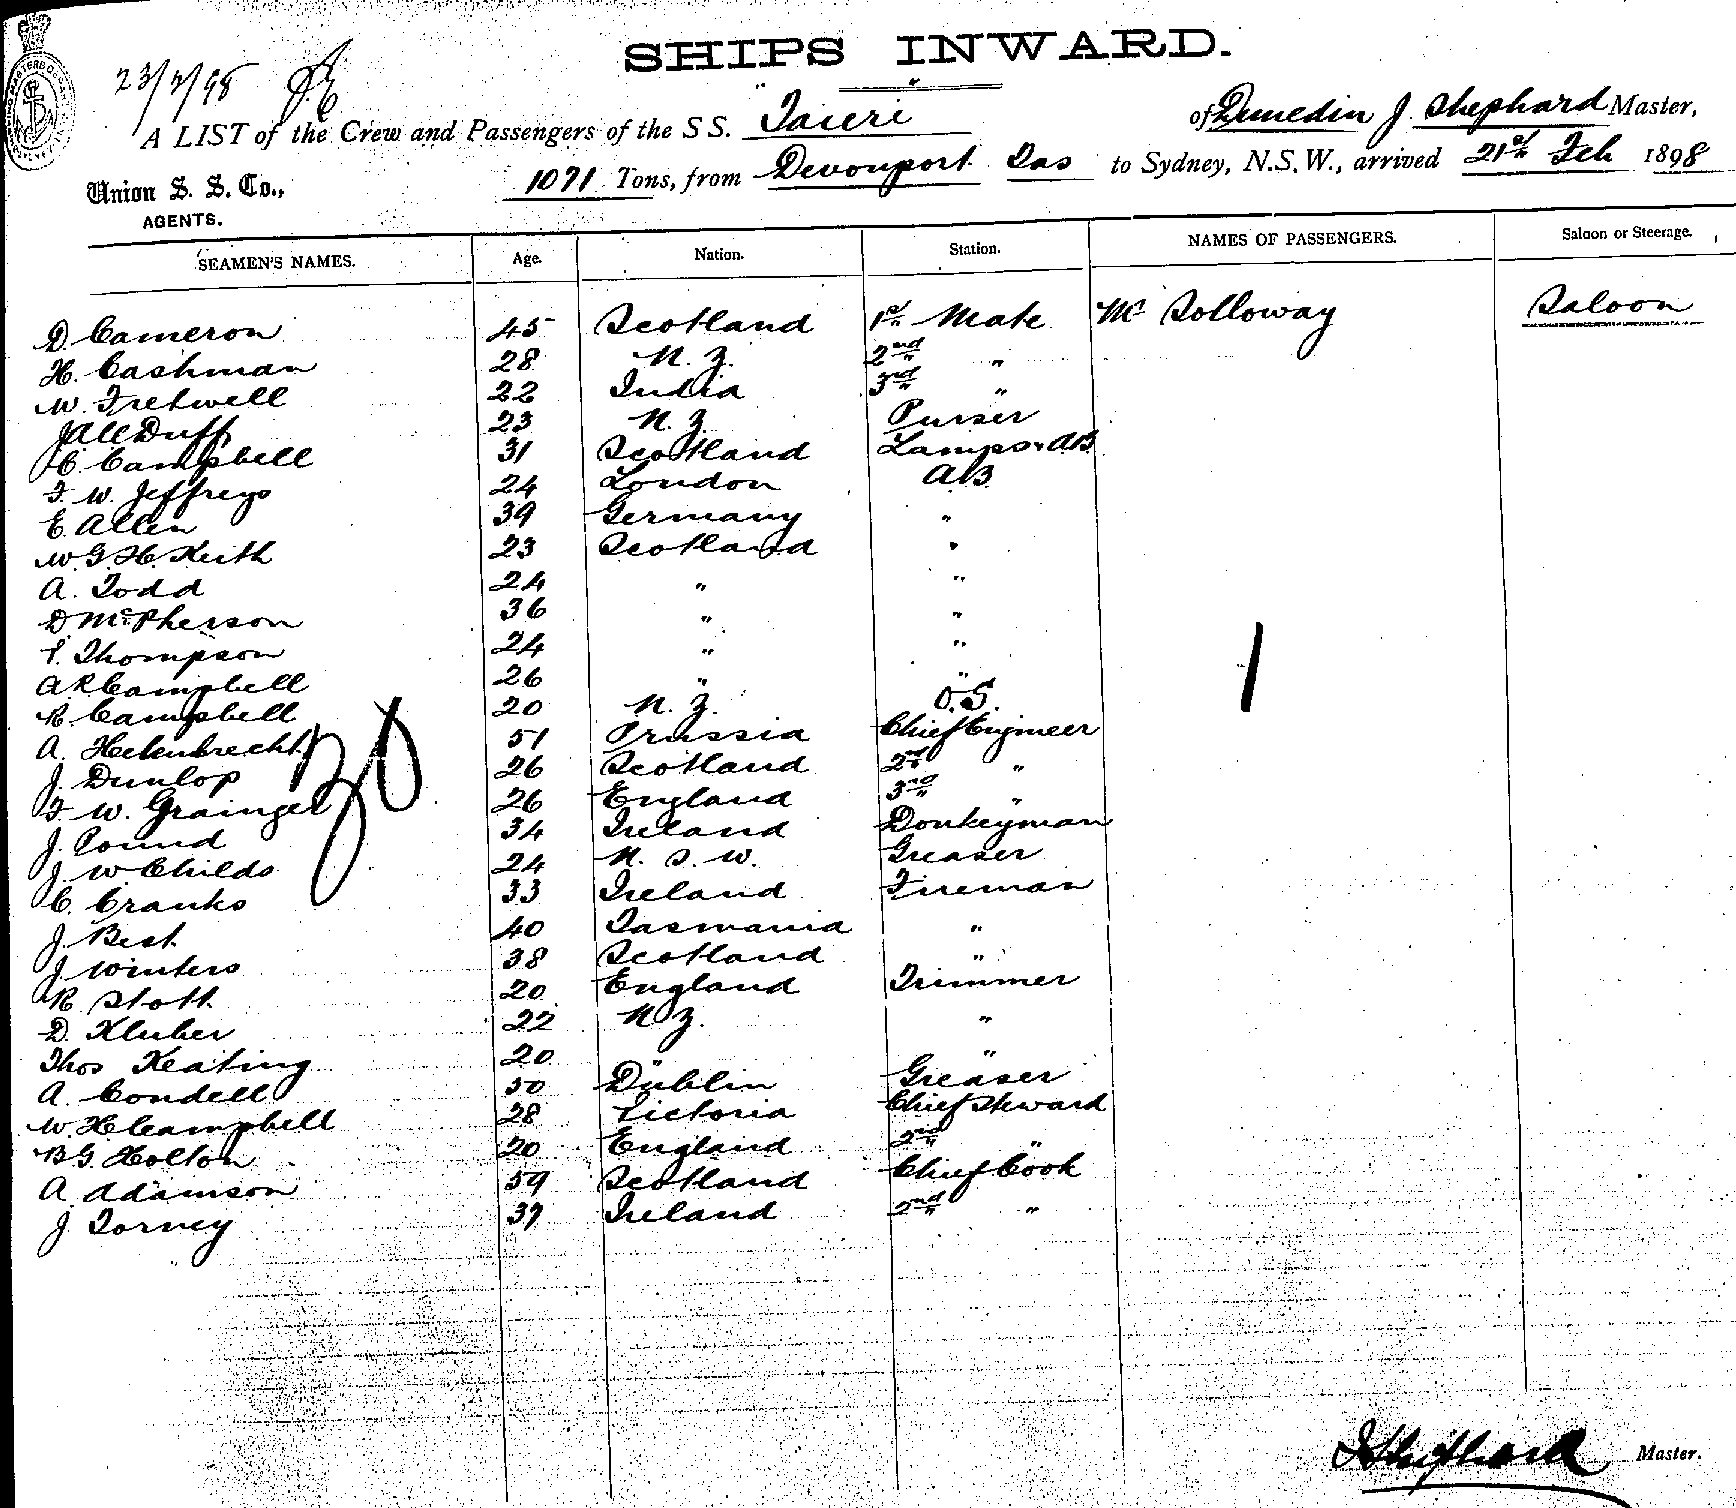 23/2/98
SHIPS INWARD.
A LIST of the Crew and Passengers of the S S. Taieri of Dunedin J. Shephard Master,
1071 Tons, from Devonport Tas to Sydney, N.S.W., arrived 21st Feb 1898
Union S. S. Co.,
AGENTS.
SEAMEN'S NAMES. Age. Nation. Station. NAMES OF PASSENGERS. Saloon or Steerage.
D. Cameron 45 Scotland 1st Mate Mr Solloway Saloon
H. Cashman 28 N. Z. 2nd "
W. Fretwell 22 India 3rd "
Duff 23 N. Z. Purser
C. Campbell 31 Scotland Lamps & AB
F. W. Jeffreys 24 London AB
E. Allen 39 Germany "
W. G. H. Keith 23 Scotland "
A. Todd 24 " "
D McPherson 36 " "
Thompson 24 " "
A R Campbell 26 " "
R. Campbell 20 N. Z. O.S.
A. 51 Prussia Chief Engineer
J. Dunlop 26 Scotland 2nd "
F. W. Grainger 26 England 3rd "
J. Pound 34 Ireland Donkeyman
J. W Childs 24 N. S. W. Greaser
C. Cranks 33 Ireland Fireman
J. Best 40 Tasmania "
J. Winters 38 Scotland "
R. Stott 20 England Trimmer
D. Kluber 22 N Z. "
Thos Keating 20 " "
A. Condell 50 Dublin Greaser
W. H Campbell 28 Victoria Chief Steward
B G. Holton 20 England 2nd "
A. Adamson 59 Scotland Chief Cook
J. Torney 37 Ireland 2nd "
30
1
J Shephard Master.